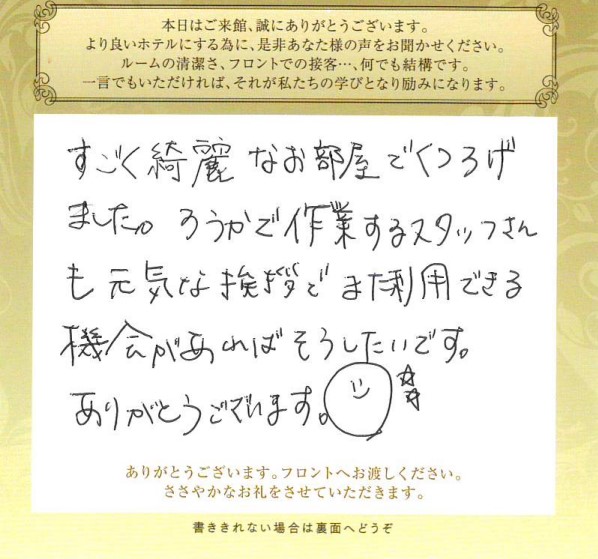 本日はご来館、誠にありがとうございます。
より良いホテルにする為に、是非あなた様の声をお聞かせください。
ルームの清潔さ、フロントでの接客…、何でも結構です。
一言でもいただければ、それが私たちの学びとなり励みになります。
すごく綺麗なお部屋でくつろげ
ました。ろうかで作業するスタッフさん
も元気な挨拶で また利用できる
機会があればそうしたいです。
ありがとうございます。
ありがとうございます。フロントへお渡しください。
ささやかなお礼をさせていただきます。
書ききれない場合は裏面へどうぞ